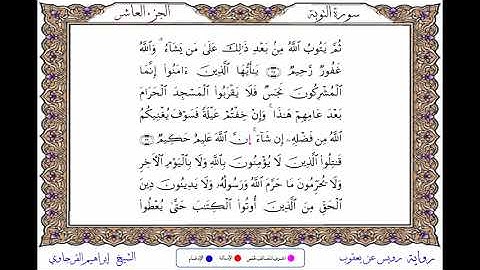 سورة التوبة
الجزء العاشر
ثُمَّ يَتُوبُ ٱللَّهُ مِنۢ بَعْدِ ذَٰلِكَ عَلَىٰ مَن يَشَآءُ ۗ وَٱللَّهُ
غَفُورٌ رَّحِيمٌ ۝ يَـٰٓأَيُّهَا ٱلَّذِينَ ءَامَنُوٓا۟ إِنَّمَا
ٱلْمُشْرِكُونَ نَجَسٌ فَلَا يَقْرَبُوا۟ ٱلْمَسْجِدَ ٱلْحَرَامَ
بَعْدَ عَامِهِمْ هَـٰذَا ۚ وَإِنْ خِفْتُمْ عَيْلَةً فَسَوْفَ يُغْنِيكُمُ
ٱللَّهُ مِن فَضْلِهِۦٓ إِن شَآءَ ۚ إِنَّ ٱللَّهَ عَلِيمٌ حَكِيمٌ ۝
قَـٰتِلُوا۟ ٱلَّذِينَ لَا يُؤْمِنُونَ بِٱللَّهِ وَلَا بِٱلْيَوْمِ ٱلْـَٔاخِرِ
وَلَا يُحَرِّمُونَ مَا حَرَّمَ ٱللَّهُ وَرَسُولُهُۥ وَلَا يَدِينُونَ دِينَ
ٱلْحَقِّ مِنَ ٱلَّذِينَ أُوتُوا۟ ٱلْكِتَـٰبَ حَتَّىٰ يُعْطُوا۟
رواية رويس عن يعقوب
الإمالة
الإدغام
الشيخ إبراهيم الفرجاوي